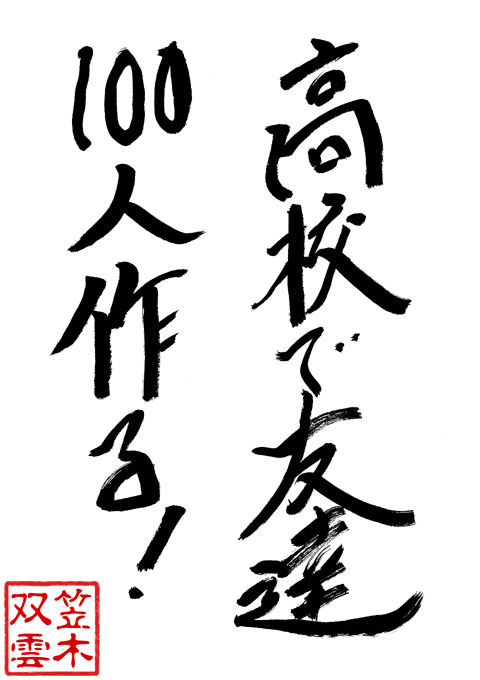 高校で友達
100人作る!
笠木
双雲